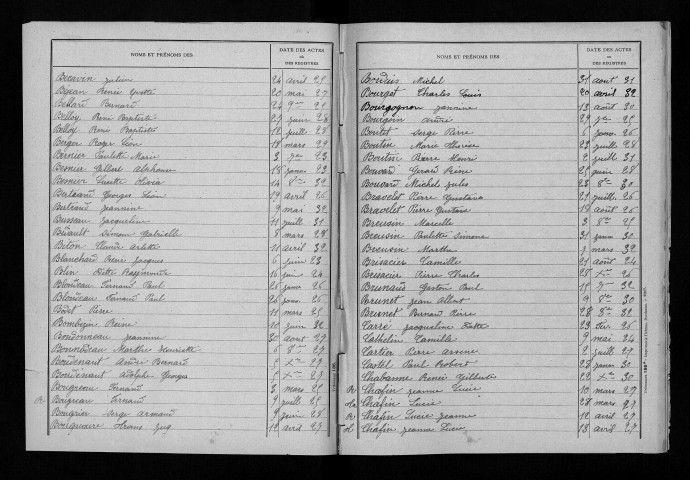 NOMS ET PRÉNOMS DES
DATE DES ACTES
OU
DES REGISTRES
Bétavin Julien 24 avril 25
Bejean Renée Yvette 20 mai 27
Bellard Bernard 24 9bre 25
Belloy René Baptiste 29 juin 28
Belloy René Baptiste 12 juill 28
Berger Roger Léon 18 mars 29
Bernier Paulette Marie 3 7bre 23
Besnier Gilbert Alphonse 18 janv 23
Lucette 14 8bre 29
Bertrand Georges Léon 19 avril 26
Bertrand Jeannine 9 mai 32
Busseau Jacqueline 11 juill 31
Simone Gabrielle 8 mars 28
Biton Claude Arlette 11 avril 32
Blanchard René Jacques 6 juin 23
Blin Raymonde 16 juin 24
Blondeau Fernand Paul 26 janv 26
Blondeau Fernand Paul 26 janv 26
Bodet Pierre 11 mars 25
Reine 10 juin 32
Bondonneau Jeannine 30 août 29
Bonnodeau Marthe Henriette 6 8bre 29
Boudenaut André Bernard 5 Xbre 29
Boudinaut Adolphe Georges 5 Xbre 29
Bougreau Fernand 3 mars 25
R Bougreau Fernand 9 juill 25
Bougrier Serge Armand 9 juin 28
12 avril 27
NOMS ET PRÉNOMS DES
DATE DES ACTES
OU
DES REGISTRES
Michel 31 août 31
Bourget Charles Louis 20 avril 32
Bourgognon Jeannine 13 août 30
Bourgoin André 29 7bre 25
Boutet Serge Pierre 6 janv 26
Boutin Marie Thérèse 23 juill 28
Boutin Pierre Henri 2 juill 31
Bouvard Gérard Pierre 25 juin 28
Bouvard Michel Jules 23 8bre 30
Bravelet Pierre Gustave 29 juill 26
Bravelet Pierre Gustave 17 août 26
Breusin Marcelle 3 8bre 25
Breusin Paulette Simone 31 janv 30
Breusin Marthe mars 32
Brisacier Camille 21 août 24
Brisacier Pierre Charles 25 Xbre 26
Brunaud Gaston Paul 15 7bre 32
Brunet Jean Albert 9 8bre 30
Brunet Bernard Pierre 28 8bre 32
Carré Jacqueline 23 fév 26
Cathelin Camille 9 mai 24
Cartier Pierre Arsène 2 juill 27
Castel Paul Robert 28 janv 30
Chabanne Renée Gilberte 22 Xbre 30
R Chafin Jeanne Lucie 19 mars 27
Chafin Lucie 28 mars 27
R Chafin Lucie Jeanne 12 avril 27
Chafin Jeanne Lucie 13 avril 27